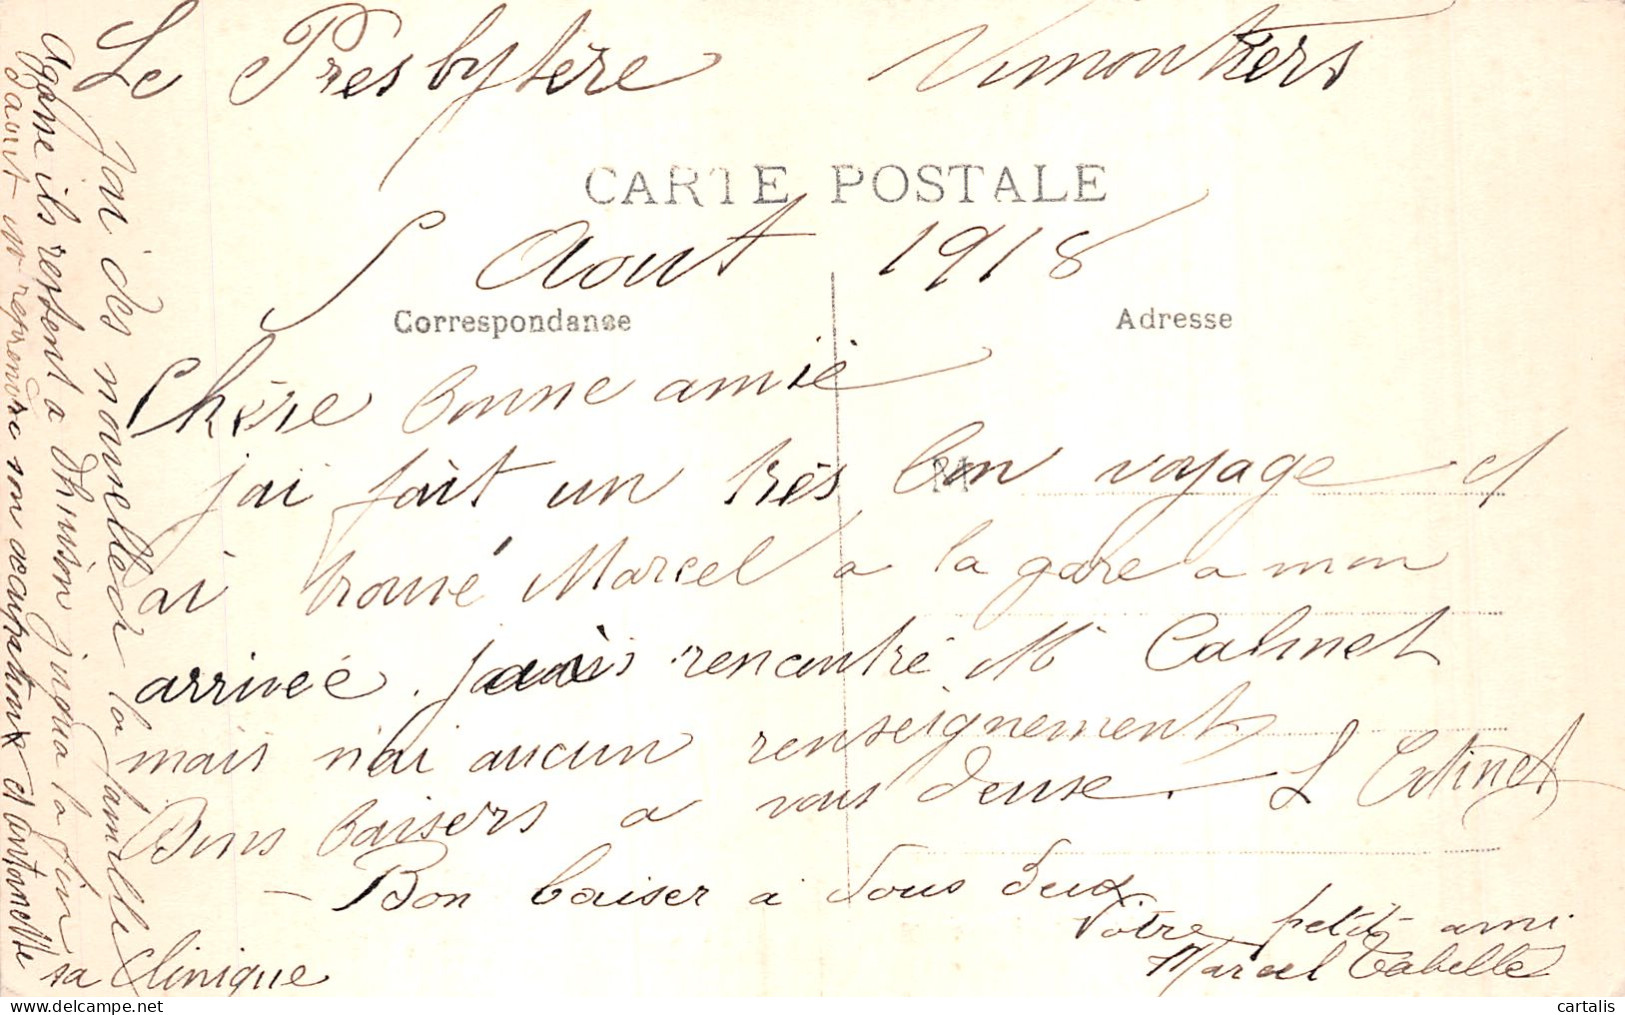 Le Presbytère Vimoutiers
CARTE POSTALE
5 Aout 1918
Correspondance
Adresse
Chère bonne amie
j'ai fait un très bon voyage et
ai trouvé Marcel a la gare a mon
arrivée. jai rencontré Mr Calmet
mais n'ai aucun renseignement
Bons baisers a vous deuse. L Cotinet
- Bon baiser a vous deux
Votre petit ami
Marcel Tabelle
J'ai des nouvelles de la famille
Agasse ils restent a jusqua la fin
daout reprendre son occupation et antoinette
sa Clinique
cartalis